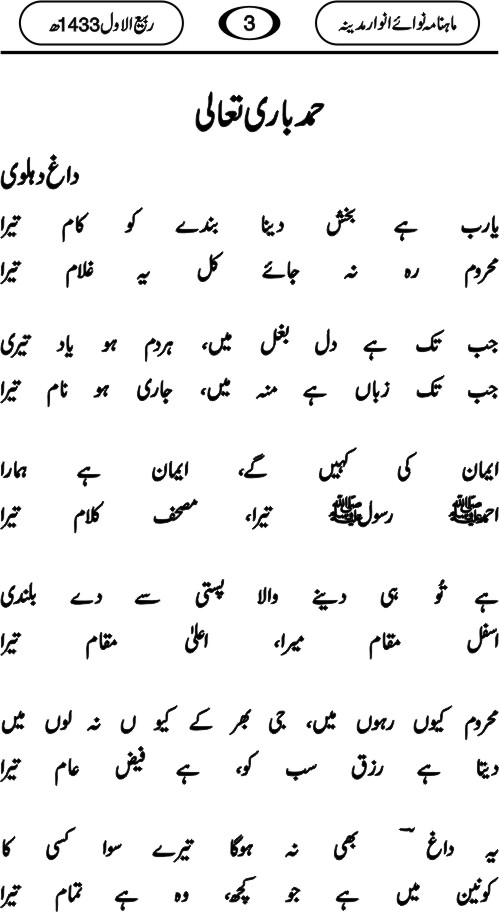 ماہنامہ نوائے انوار مدینہ 3 ربیع الاول 1433ھ
حمد باری تعالی
داغ دہلوی
یارب ہے بخش دینا بندے کو کام تیرا
محروم رہ نہ جائے کل یہ غلام تیرا
جب تک ہے دل بغل میں، ہردم ہو یاد تیری
جب تک زباں ہے منہ میں، جاری ہو نام تیرا
ایمان کی کہیں گے، ایمان ہے ہمارا
احمدﷺ رسولﷺ تیرا، مصحف کلام تیرا
ہے تُو ہی دینے والا پستی سے دے بلندی
اسفل مقام میرا، اعلیٰ مقام تیرا
محروم کیوں رہوں میں، جی بھر کے کیو ں نہ لوں میں
دیتا ہے رزق سب کو، ہے فیض عام تیرا
یہ داغ ؔ بھی نہ ہوگا تیرے سوا کسی کا
کونین میں ہے جو کچھ، وہ ہے تمام تیرا